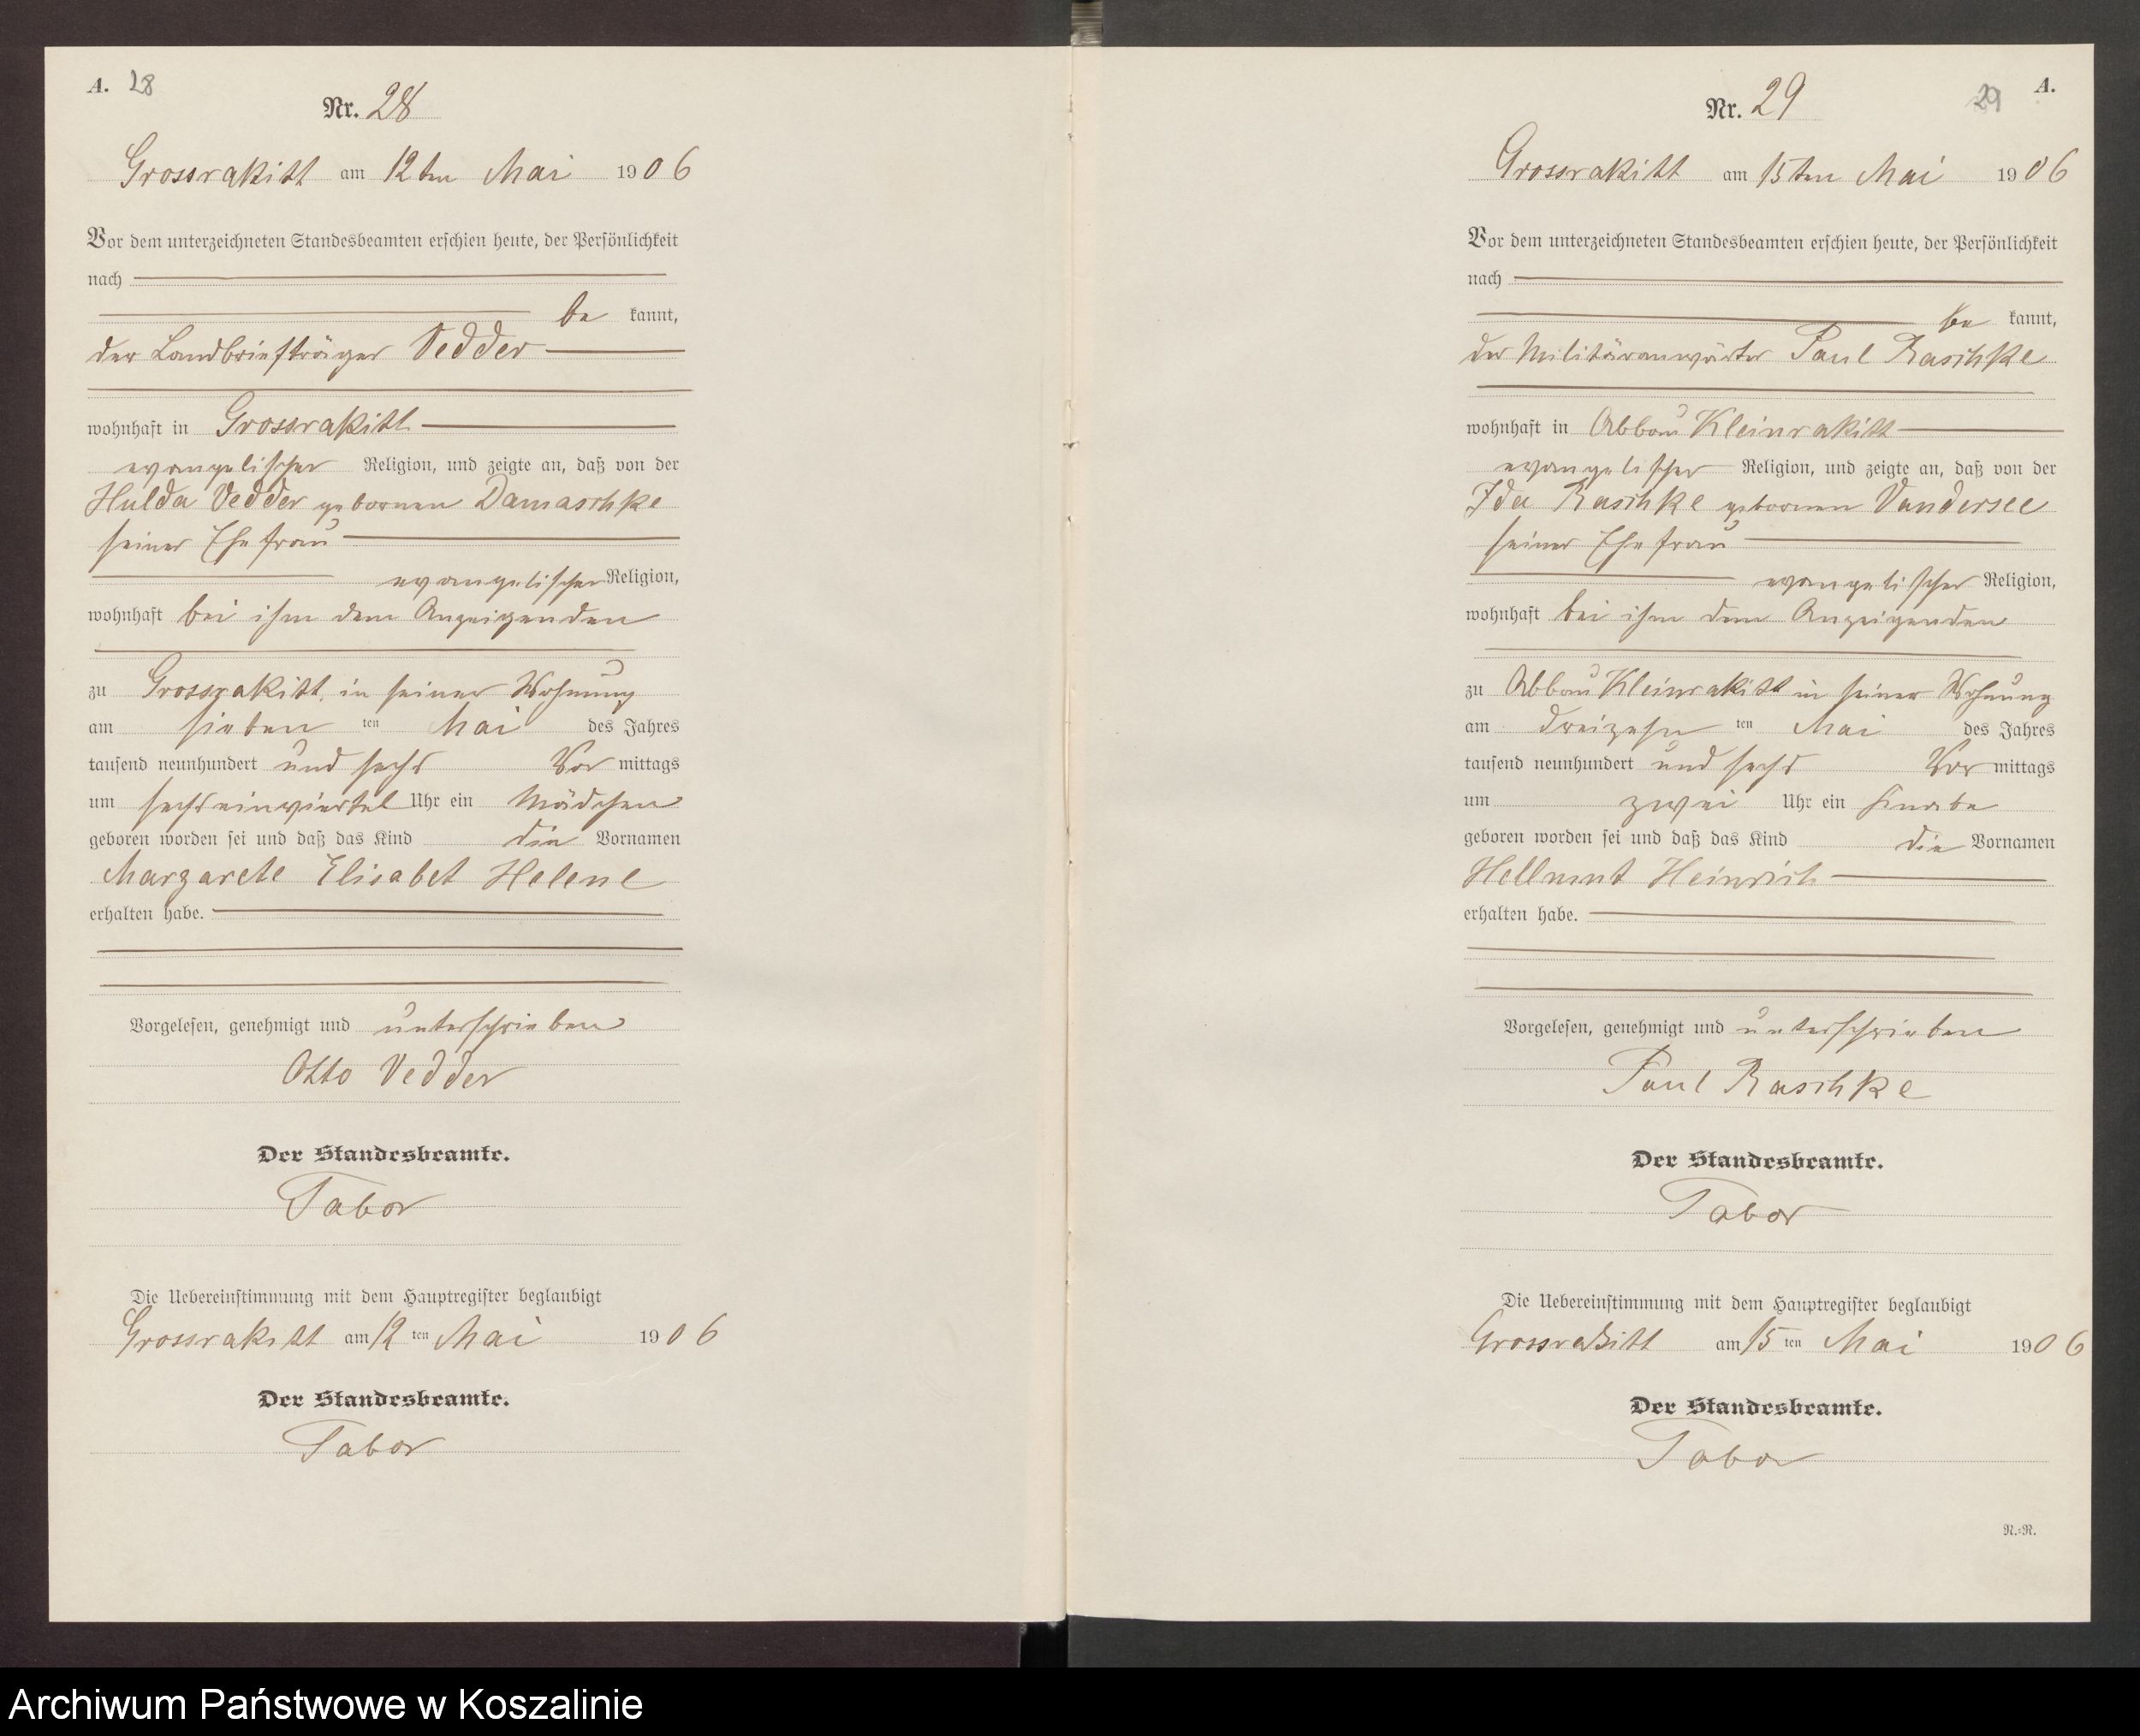 A. 28
Nr. 28
Grossrakitt am 12ten Mai 1906
Vor dem unterzeichneten Standesbeamten erschien heute, der Persönlichkeit
nach
be kannt,
der Landbriefträger Vedder
wohnhaft in Grossrakitt
evangelischer Religion, und zeigte an, daß von der
Hulda Vedder gebornen Damaschke
seiner Ehefrau
evangelischer Religion,
wohnhaft bei ihm dem Anzeigenden
zu Grossrakitt in seiner Wohnung
am sieben ten Mai des Jahres
tausend neunhundert und sechs Vor mittags
um sechseinviertel Uhr ein Mädchen
geboren worden sei und daß das Kind die Vornamen
Margarete Elisabet Helene
erhalten habe.
Vorgelesen, genehmigt und unterschrieben
Otto Vedder
Der Standesbeamte.
Tabor
Die Uebereinstimmung mit dem Hauptregister beglaubigt
Grossrakitt am 12 ten Mai 1906
Der Standesbeamte.
Tabor
29 A.
Nr. 29
Grossrakitt am 15ten Mai 1906
Vor dem unterzeichneten Standesbeamten erschien heute, der Persönlichkeit
nach
be kannt,
der Militäranwärter Paul Raschke
wohnhaft in Abbau Kleinrakitt
evangelischer Religion, und zeigte an, daß von der
Ida Raschke gebornen Vandersee
seiner Ehefrau
evangelischer Religion,
wohnhaft bei ihm dem Anzeigenden
zu Abbau Kleinrakitt in seiner Wohnung
am dreizehn ten Mai des Jahres
tausend neunhundert und sechs Vor mittags
um zwei Uhr ein Knabe
geboren worden sei und daß das Kind die Vornamen
Hellmut Heinrich
erhalten habe.
Vorgelesen, genehmigt und unterschrieben
Paul Raschke
Der Standesbeamte.
Tabor
Die Uebereinstimmung mit dem Hauptregister beglaubigt
Grossrakitt am 15 ten Mai 1906
Der Standesbeamte.
Tabor
N.=R.
Archiwum Państwowe w Koszalinie